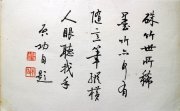 硃竹世所稀
墨竹亦有
隨意筆縱横
人眼聽我手
启功自題